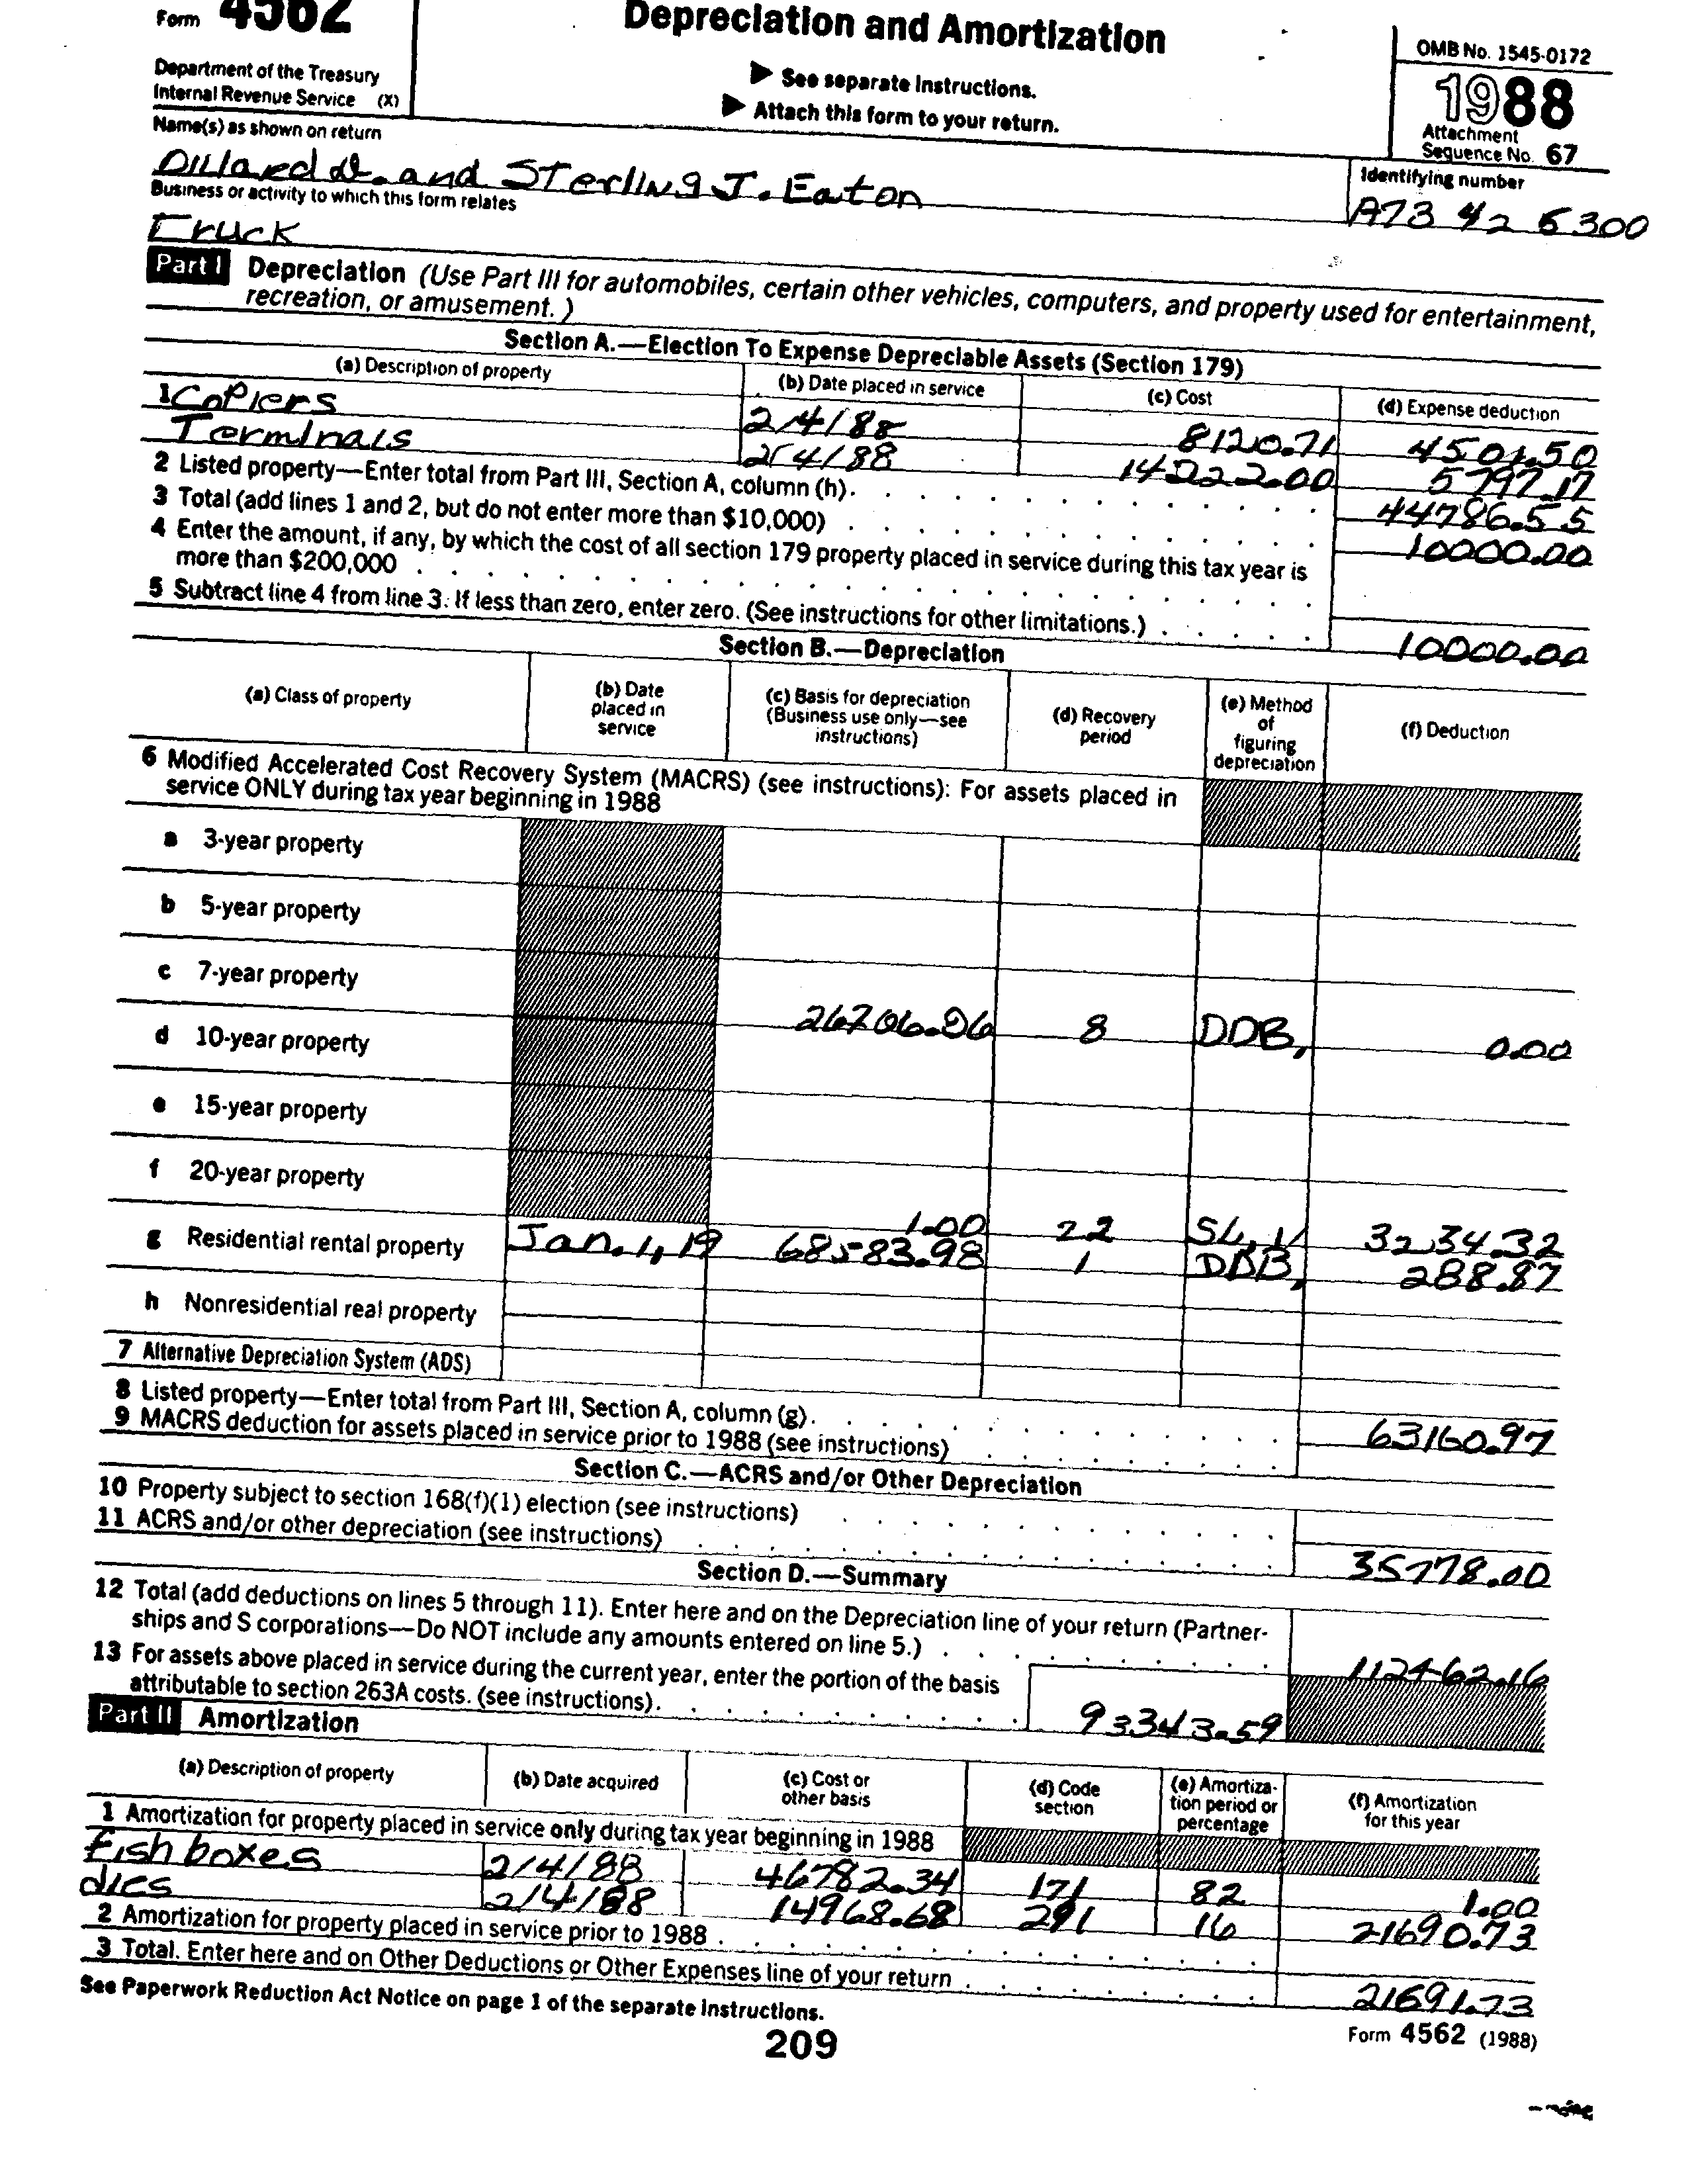 Form 4562
Depreciation and Amortization
OMB No. 1545-0172
Department of the Treasury
Internal Revenue Service (X)
▶ See separate Instructions.
▶ Attach this form to your return.
1988
Attachment
Sequence No. 67
Name(s) as shown on return
Identifying number
Dillard D. and Sterling J. Eaton
A73 42 6300
Business or activity to which this form relates
Truck
Part I Depreciation (Use Part III for automobiles, certain other vehicles, computers, and property used for entertainment,
recreation, or amusement.)
Section A.—Election To Expense Depreciable Assets (Section 179)
(a) Description of property (b) Date placed in service (c) Cost (d) Expense deduction
1 Copiers 2/4/88 8120.71 4501.50
Terminals 2/4/88 14222.00 5797.17
2 Listed property—Enter total from Part III, Section A, column (h). 44786.55
3 Total (add lines 1 and 2, but do not enter more than $10,000) 10000.00
4 Enter the amount, if any, by which the cost of all section 179 property placed in service during this tax year is
more than $200,000
5 Subtract line 4 from line 3. If less than zero, enter zero. (See instructions for other limitations.) 10000.00
Section B.—Depreciation
(a) Class of property (b) Date placed in service (c) Basis for depreciation (Business use only—see instructions) (d) Recovery period (e) Method of figuring depreciation (f) Deduction
6 Modified Accelerated Cost Recovery System (MACRS) (see instructions): For assets placed in
service ONLY during tax year beginning in 1988
a 3-year property
b 5-year property
c 7-year property
d 10-year property 26706.06 8 DDB, 0.00
e 15-year property
f 20-year property
g Residential rental property Jan. 1, 19 1.00 22 SL, 1/ 3234.32
68583.98 1 DBB, 288.87
h Nonresidential real property
7 Alternative Depreciation System (ADS)
8 Listed property—Enter total from Part III, Section A, column (g). 63160.97
9 MACRS deduction for assets placed in service prior to 1988 (see instructions)
Section C.—ACRS and/or Other Depreciation
10 Property subject to section 168(f)(1) election (see instructions)
11 ACRS and/or other depreciation (see instructions) 35778.00
Section D.—Summary
12 Total (add deductions on lines 5 through 11). Enter here and on the Depreciation line of your return (Partner-
ships and S corporations—Do NOT include any amounts entered on line 5.) 112462.16
13 For assets above placed in service during the current year, enter the portion of the basis
attributable to section 263A costs. (see instructions). 93343.59
Part II Amortization
(a) Description of property (b) Date acquired (c) Cost or other basis (d) Code section (e) Amortiza-tion period or percentage (f) Amortization for this year
1 Amortization for property placed in service only during tax year beginning in 1988
Fish boxes 2/4/88 46782.34 171 82 1.00
dies 2/4/88 14968.68 291 16 21690.73
2 Amortization for property placed in service prior to 1988
3 Total. Enter here and on Other Deductions or Other Expenses line of your return 21691.73
See Paperwork Reduction Act Notice on page 1 of the separate Instructions.
Form 4562 (1988)
209